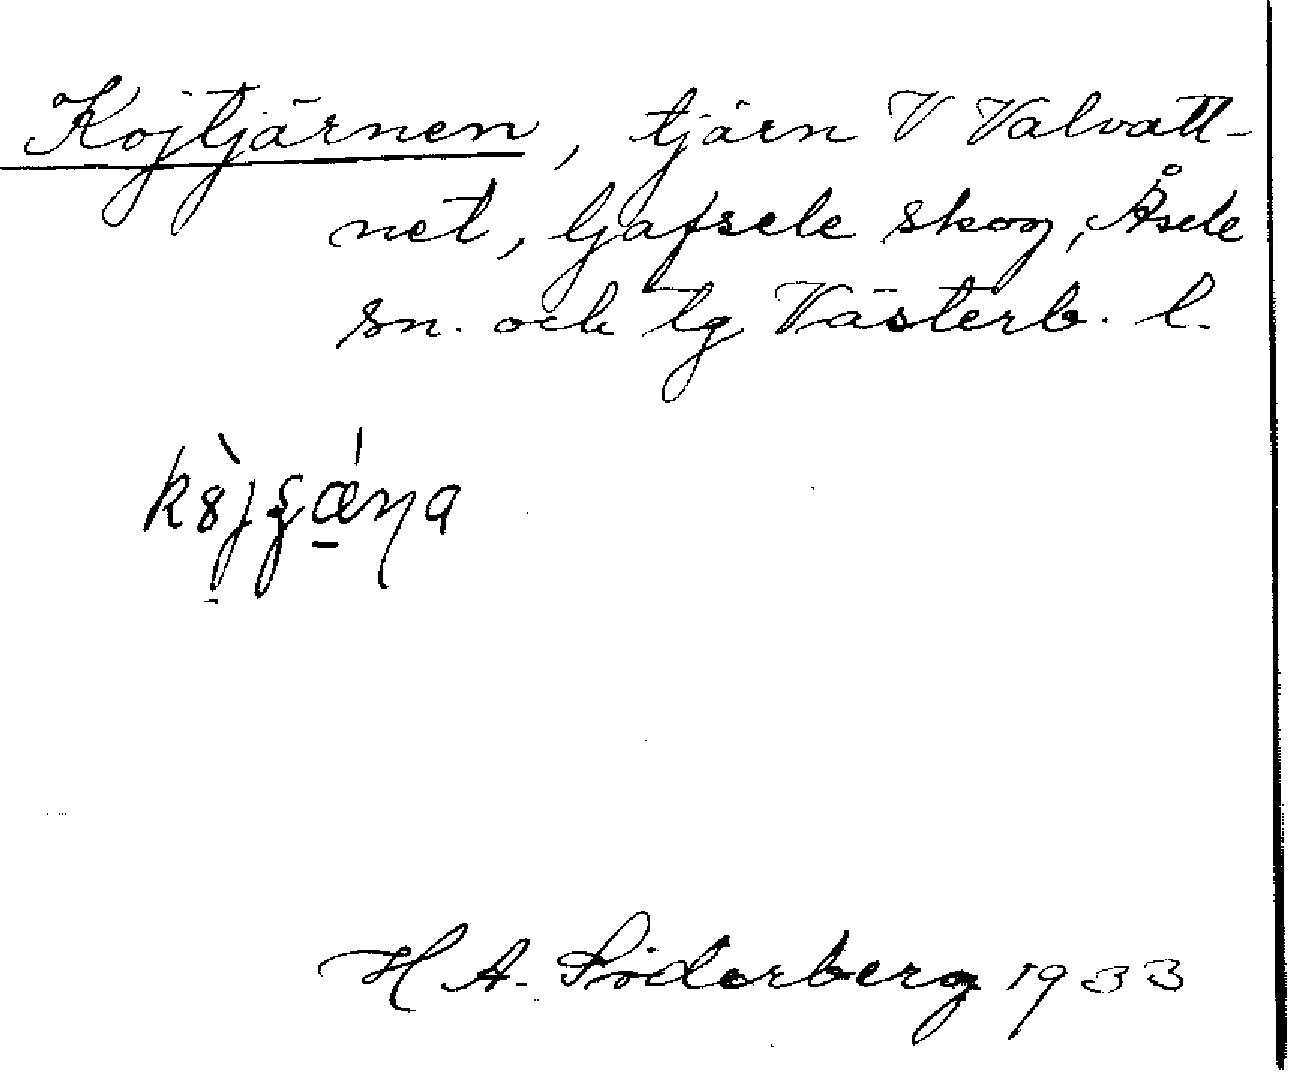 Kojtjärnen, tjärn V Valvatt-
net, Gafsele skog, Åsele
sn. och lg Västerb. l.
H A. Söderberg 1933